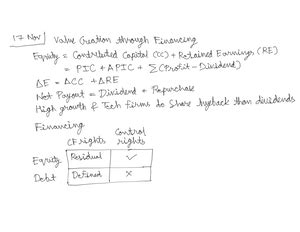 17 Nov Value Creation through Financing
Equity = Contributed Capital (CC) + Retained Earnings (RE)
= PIC + APIC + Σ(Profit - Dividend)
ΔE = ΔCC + ΔRE
Net Payout = Dividend + Repurchase
High growth & Tech firms do Share buyback than dividends
Financing
CF rights Control rights
Equity Residual ✓
Debt Defined ×